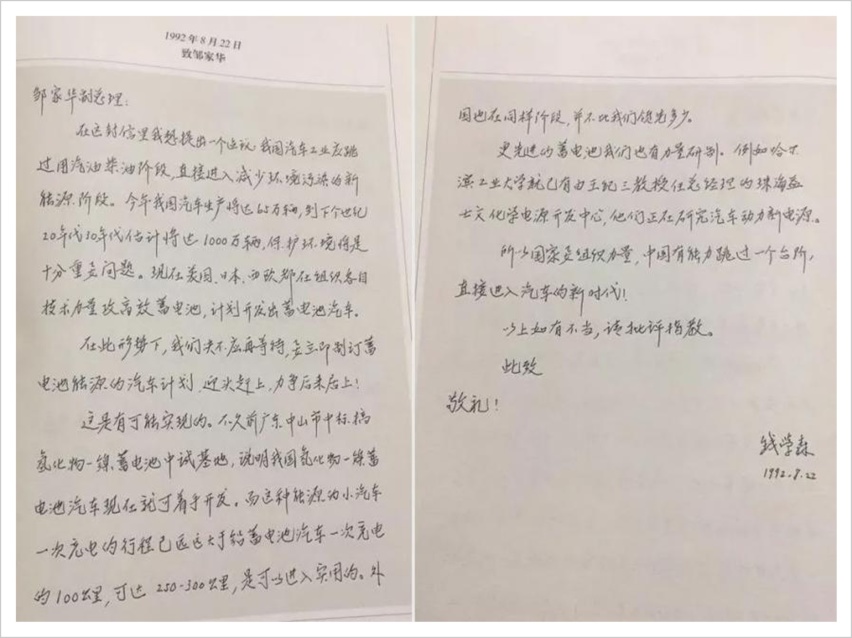 1992年8月22日
致邹家华
邹家华副总理:
在这封信里我想提出一个建议:我国汽车工业应跳
过用汽油柴油阶段,直接进入减少环境污染的新
能源阶段。今年我国汽车生产将达65万辆,到下个世纪
20年代30年代估计将达1000万辆,保护环境将是
十分重要问题。现在美国、日本、西欧都在组织各自
技术力量攻高效蓄电池,计划开发出蓄电池汽车。
在此形势下,我们决不应再等待,要立即制订蓄
电池能源的汽车计划,迎头赶上,力争后来居上!
这是有可能实现的。不久前广东中山市中标,搞
氢化物—镍蓄电池中试基地,说明我国氢化物—镍蓄
电池汽车现在就可着手开发。而这种能源的小汽车
一次充电的行程已远远大于铅蓄电池汽车一次充电
的100公里,可达250-300公里,是可以进入实用的。外
国也在同样阶段,并不比我们领先多少。
更先进的蓄电池我们也有力量研制。例如哈尔
滨工业大学就已有由王纪三教授任总经理的珠海益
士文化学电源开发中心,他们正在研究汽车动力新电源。
所以国家要组织力量,中国有能力跳过一个台阶,
直接进入汽车的新时代!
以上如有不当,请批评指教。
此致
敬礼!
钱学森
1992.8.22